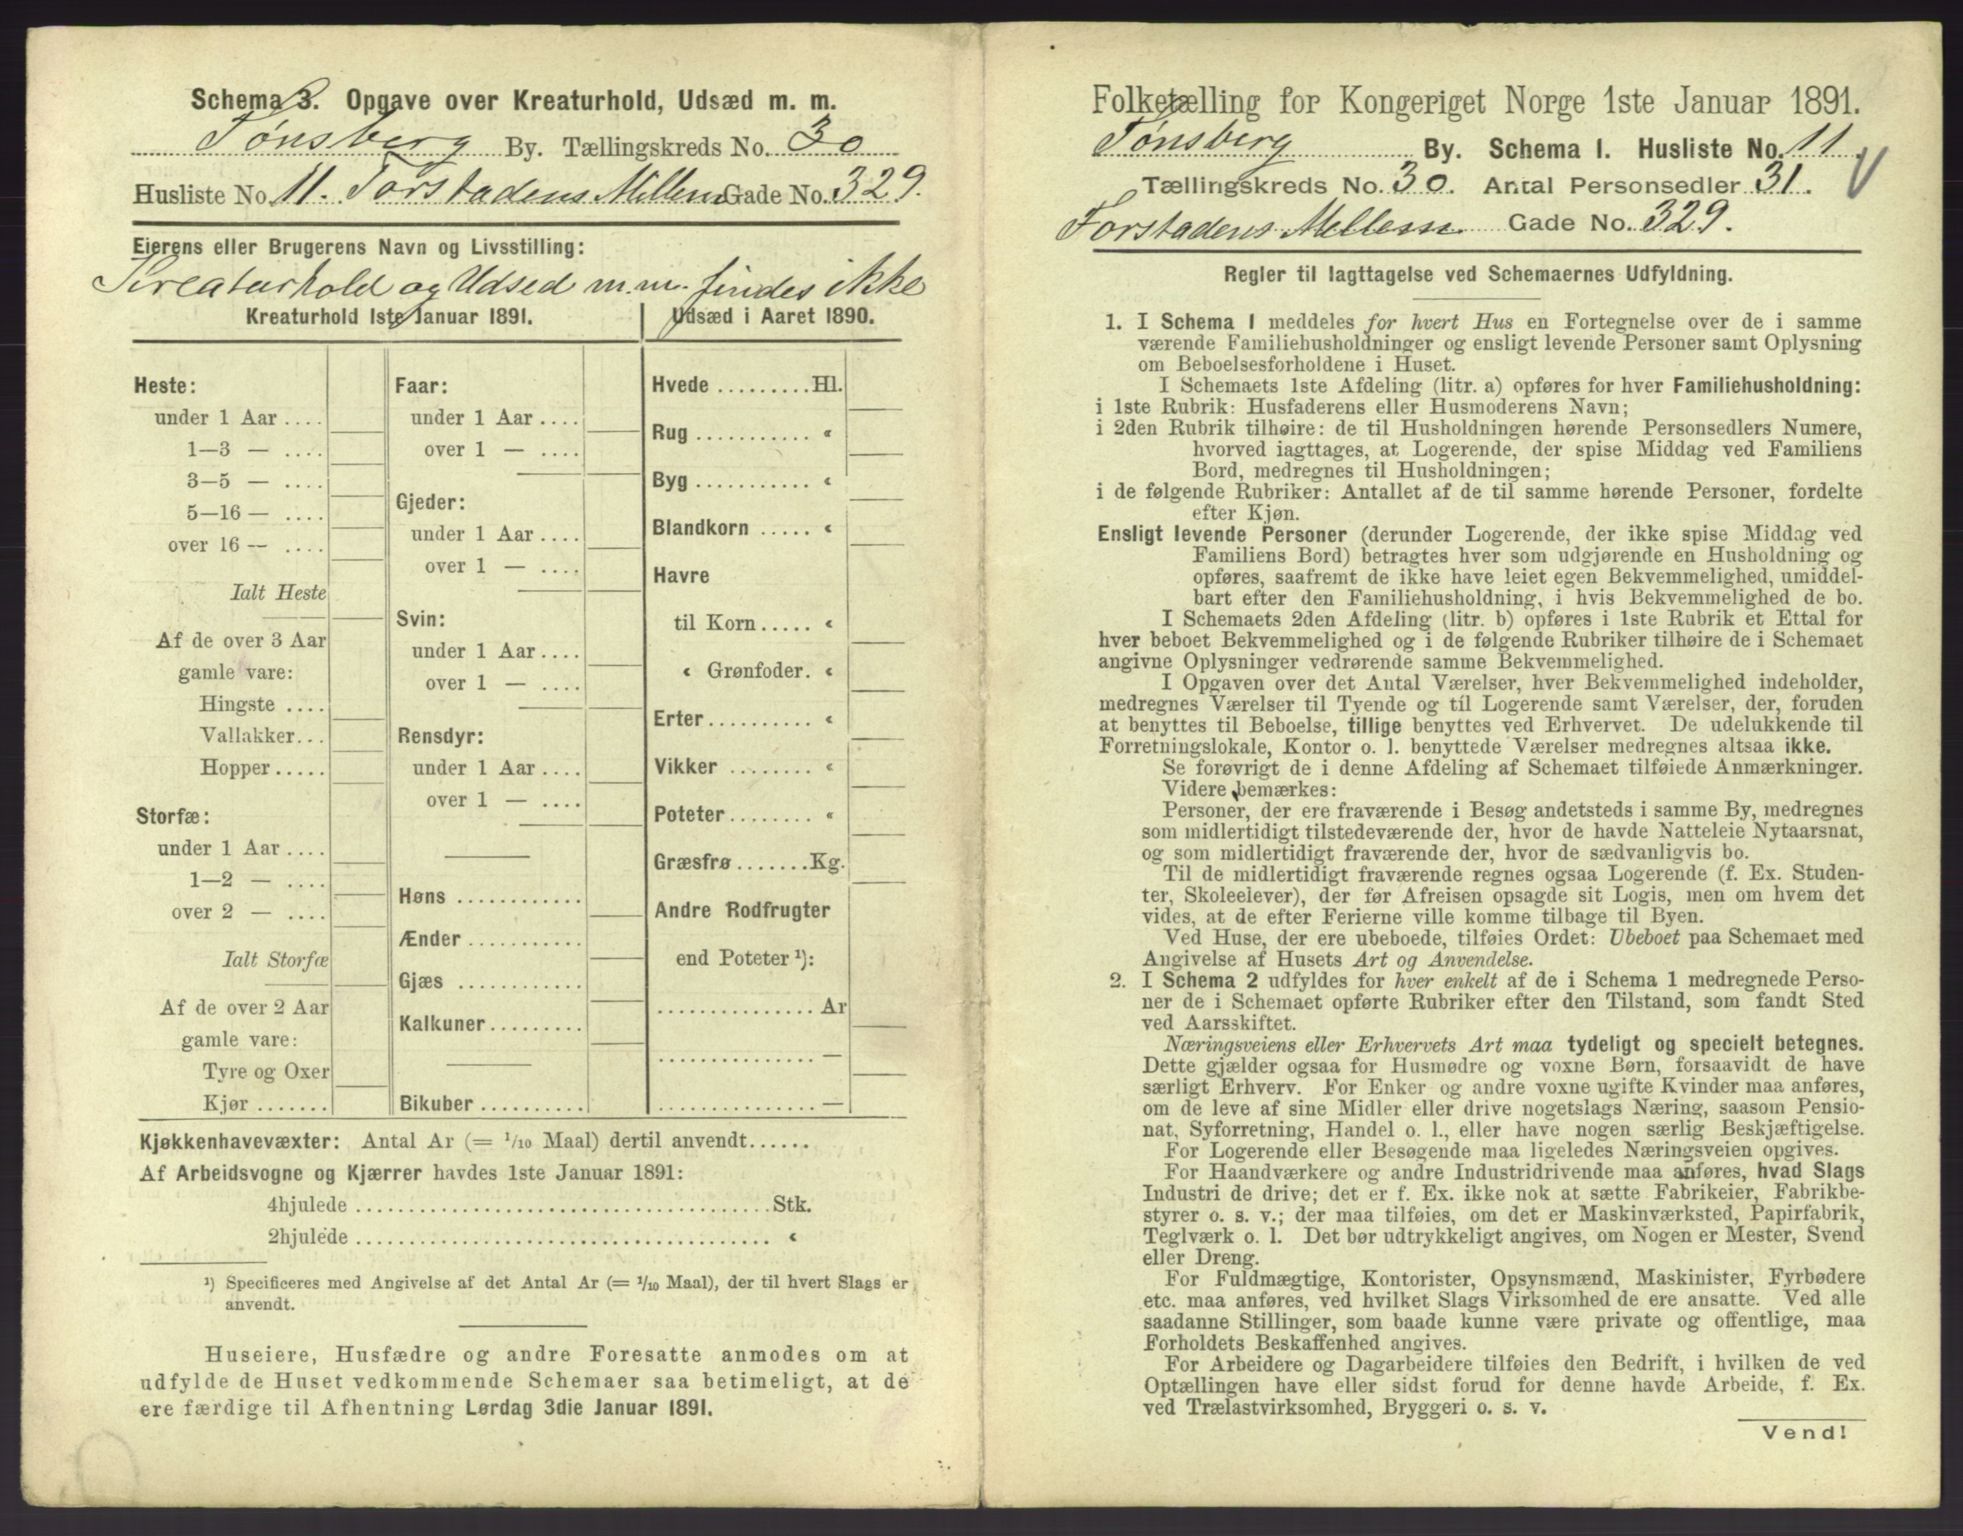 Schema 3. Opgave over Kreaturhold, Udsæd m. m.
Tønsberg By. Tællingskreds No. 30
Husliste No. 11. Forstadens Mellem Gade No. 329.
Eierens eller Brugerens Navn og Livsstilling:
Kreaturhold og Udsed m.m. findes ikke
Kreaturhold 1ste Januar 1891.
Heste:
under 1 Aar ....
1—3 — ....
3—5 — ....
5—16 — ....
over 16 — ....
Ialt Heste
Af de over 3 Aar
gamle vare:
Hingste ....
Vallakker...
Hopper.....
Storfæ:
under 1 Aar ....
1—2 — ....
over 2 — ....
Ialt Storfæ
Af de over 2 Aar
gamle vare:
Tyre og Oxer
Kjør .......
Faar:
under 1 Aar ....
over 1 — ....
Gjeder:
under 1 Aar ....
over 1 — ....
Svin:
under 1 Aar ....
over 1 — ....
Rensdyr:
under 1 Aar ....
over 1 — ....
Høns ............
Ænder ...........
Gjæs ............
Kalkuner.........
Bikuber ..........
Udsæd i Aaret 1890.
Hvede .........Hl.
Rug ........... «
Byg ........... «
Blandkorn ..... «
Havre
til Korn..... «
« Grønfoder. «
Erter.......... «
Vikker ........ «
Poteter........ «
Græsfrø .......Kg.
Andre Rodfrugter
end Poteter ¹):
............... Ar
............... —
............... —
Kjøkkenhavevæxter: Antal Ar (= 1/10 Maal) dertil anvendt......
Af Arbeidsvogne og Kjærrer havdes 1ste Januar 1891:
4hjulede ........................................Stk.
2hjulede ........................................ «
¹) Specificeres med Angivelse af det Antal Ar (= 1/10 Maal), der til hvert Slags er
anvendt.
Huseiere, Husfædre og andre Foresatte anmodes om at
udfylde de Huset vedkommende Schemaer saa betimeligt, at de
ere færdige til Afhentning Lørdag 3die Januar 1891.
Folketælling for Kongeriget Norge 1ste Januar 1891.
Tønsberg By. Schema I. Husliste No. 11.
Tællingskreds No. 30. Antal Personsedler 31.
Forstadens Mellem Gade No. 329.
Regler til Iagttagelse ved Schemaernes Udfyldning.
1. I Schema 1 meddeles for hvert Hus en Fortegnelse over de i samme
værende Familiehusholdninger og ensligt levende Personer samt Oplysning
om Beboelsesforholdene i Huset.
I Schemaets 1ste Afdeling (litr. a) opføres for hver Familiehusholdning:
i 1ste Rubrik: Husfaderens eller Husmoderens Navn;
i 2den Rubrik tilhøire: de til Husholdningen hørende Personsedlers Numere,
hvorved iagttages, at Logerende, der spise Middag ved Familiens
Bord, medregnes til Husholdningen;
i de følgende Rubriker: Antallet af de til samme hørende Personer, fordelte
efter Kjøn.
Ensligt levende Personer (derunder Logerende, der ikke spise Middag ved
Familiens Bord) betragtes hver som udgjørende en Husholdning og
opføres, saafremt de ikke have leiet egen Bekvemmelighed, umiddel-
bart efter den Familiehusholdning, i hvis Bekvemmelighed de bo.
I Schemaets 2den Afdeling (litr. b) opføres i 1ste Rubrik et Ettal for
hver beboet Bekvemmelighed og i de følgende Rubriker tilhøire de i Schemaet
angivne Oplysninger vedrørende samme Bekvemmelighed.
I Opgaven over det Antal Værelser, hver Bekvemmelighed indeholder,
medregnes Værelser til Tyende og til Logerende samt Værelser, der, foruden
at benyttes til Beboelse, tillige benyttes ved Erhvervet. De udelukkende til
Forretningslokale, Kontor o. l. benyttede Værelser medregnes altsaa ikke.
Se forøvrigt de i denne Afdeling af Schemaet tilføiede Anmærkninger.
Videre bemærkes:
Personer, der ere fraværende i Besøg andetsteds i samme By, medregnes
som midlertidigt tilstedeværende der, hvor de havde Natteleie Nytaarsnat,
og som midlertidigt fraværende der, hvor de sædvanligvis bo.
Til de midlertidigt fraværende regnes ogsaa Logerende (f. Ex. Studen-
ter, Skoleelever), der før Afreisen opsagde sit Logis, men om hvem det
vides, at de efter Ferierne ville komme tilbage til Byen.
Ved Huse, der ere ubeboede, tilføies Ordet: Ubeboet paa Schemaet med
Angivelse af Husets Art og Anvendelse.
2. I Schema 2 udfyldes for hver enkelt af de i Schema 1 medregnede Perso-
ner de i Schemaet opførte Rubriker efter den Tilstand, som fandt Sted
ved Aarsskiftet.
Næringsveiens eller Erhvervets Art maa tydeligt og specielt betegnes.
Dette gjælder ogsaa for Husmødre og voxne Børn, forsaavidt de have
særligt Erhverv. For Enker og andre voxne ugifte Kvinder maa anføres,
om de leve af sine Midler eller drive nogetslags Næring, saasom Pensio-
nat, Syforretning, Handel o. l., eller have nogen særlig Beskjæftigelse.
For Logerende eller Besøgende maa ligeledes Næringsveien opgives.
For Haandværkere og andre Industridrivende maa anføres, hvad Slags
Industri de drive; det er f. Ex. ikke nok at sætte Fabrikeier, Fabrikbe-
styrer o. s. v.; der maa tilføies, om det er Maskinværksted, Papirfabrik,
Teglværk o. l. Det bør udtrykkeligt angives, om Nogen er Mester, Svend
eller Dreng.
For Fuldmægtige, Kontorister, Opsynsmænd, Maskinister, Fyrbødere
etc. maa anføres, ved hvilket Slags Virksomhed de ere ansatte. Ved alle
saadanne Stillinger, som baade kunne være private og offentlige, maa
Forholdets Beskaffenhed angives.
For Arbeidere og Dagarbeidere tilføies den Bedrift, i hvilken de ved
Optællingen have eller sidst forud for denne havde Arbeide, f. Ex.
ved Trælastvirksomhed, Bryggeri o. s. v.
Vend!